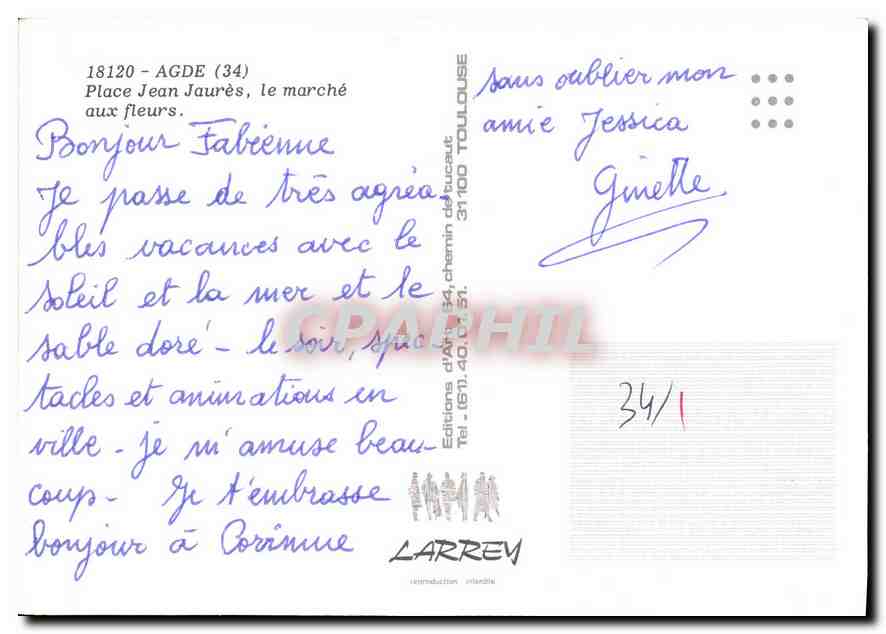 18120 - AGDE (34)
Place Jean Jaurès, le marché
aux fleurs.
Bonjour Fabienne
Je passe de très agréa-
bles vacances avec le
soleil et la mer et le
sable doré - le soir, spec-
tacles et animations en
ville - je m'amuse beau-
coup - Je t'embrasse
bonjour à Corinne
sans oublier mon
amie Jessica
Ginette
34/1
Editions d'Art 64, chemin de tucaut
Tel - (61). 40. 51. 31100 TOULOUSE
CPAPHIL
LARREY
reproduction interdite